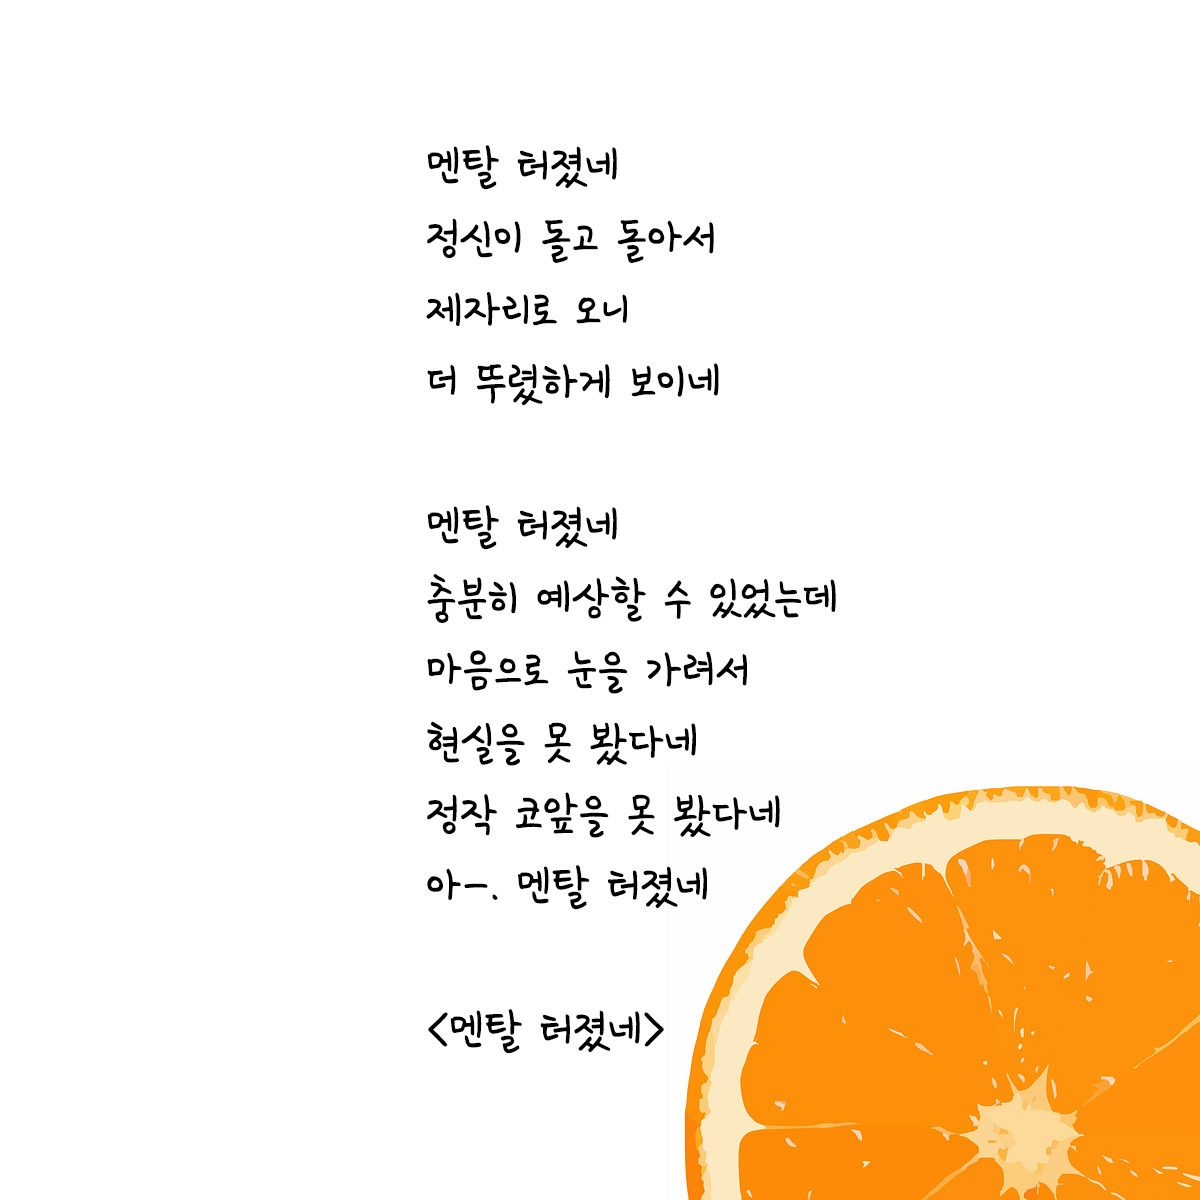 멘탈 터졌네
정신이 돌고 돌아서
제자리로 오니
더 뚜렷하게 보이네
멘탈 터졌네
충분히 예상할 수 있었는데
마음으로 눈을 가려서
현실을 못 봤다네
정작 코앞을 못 봤다네
아-. 멘탈 터졌네
<멘탈 터졌네>